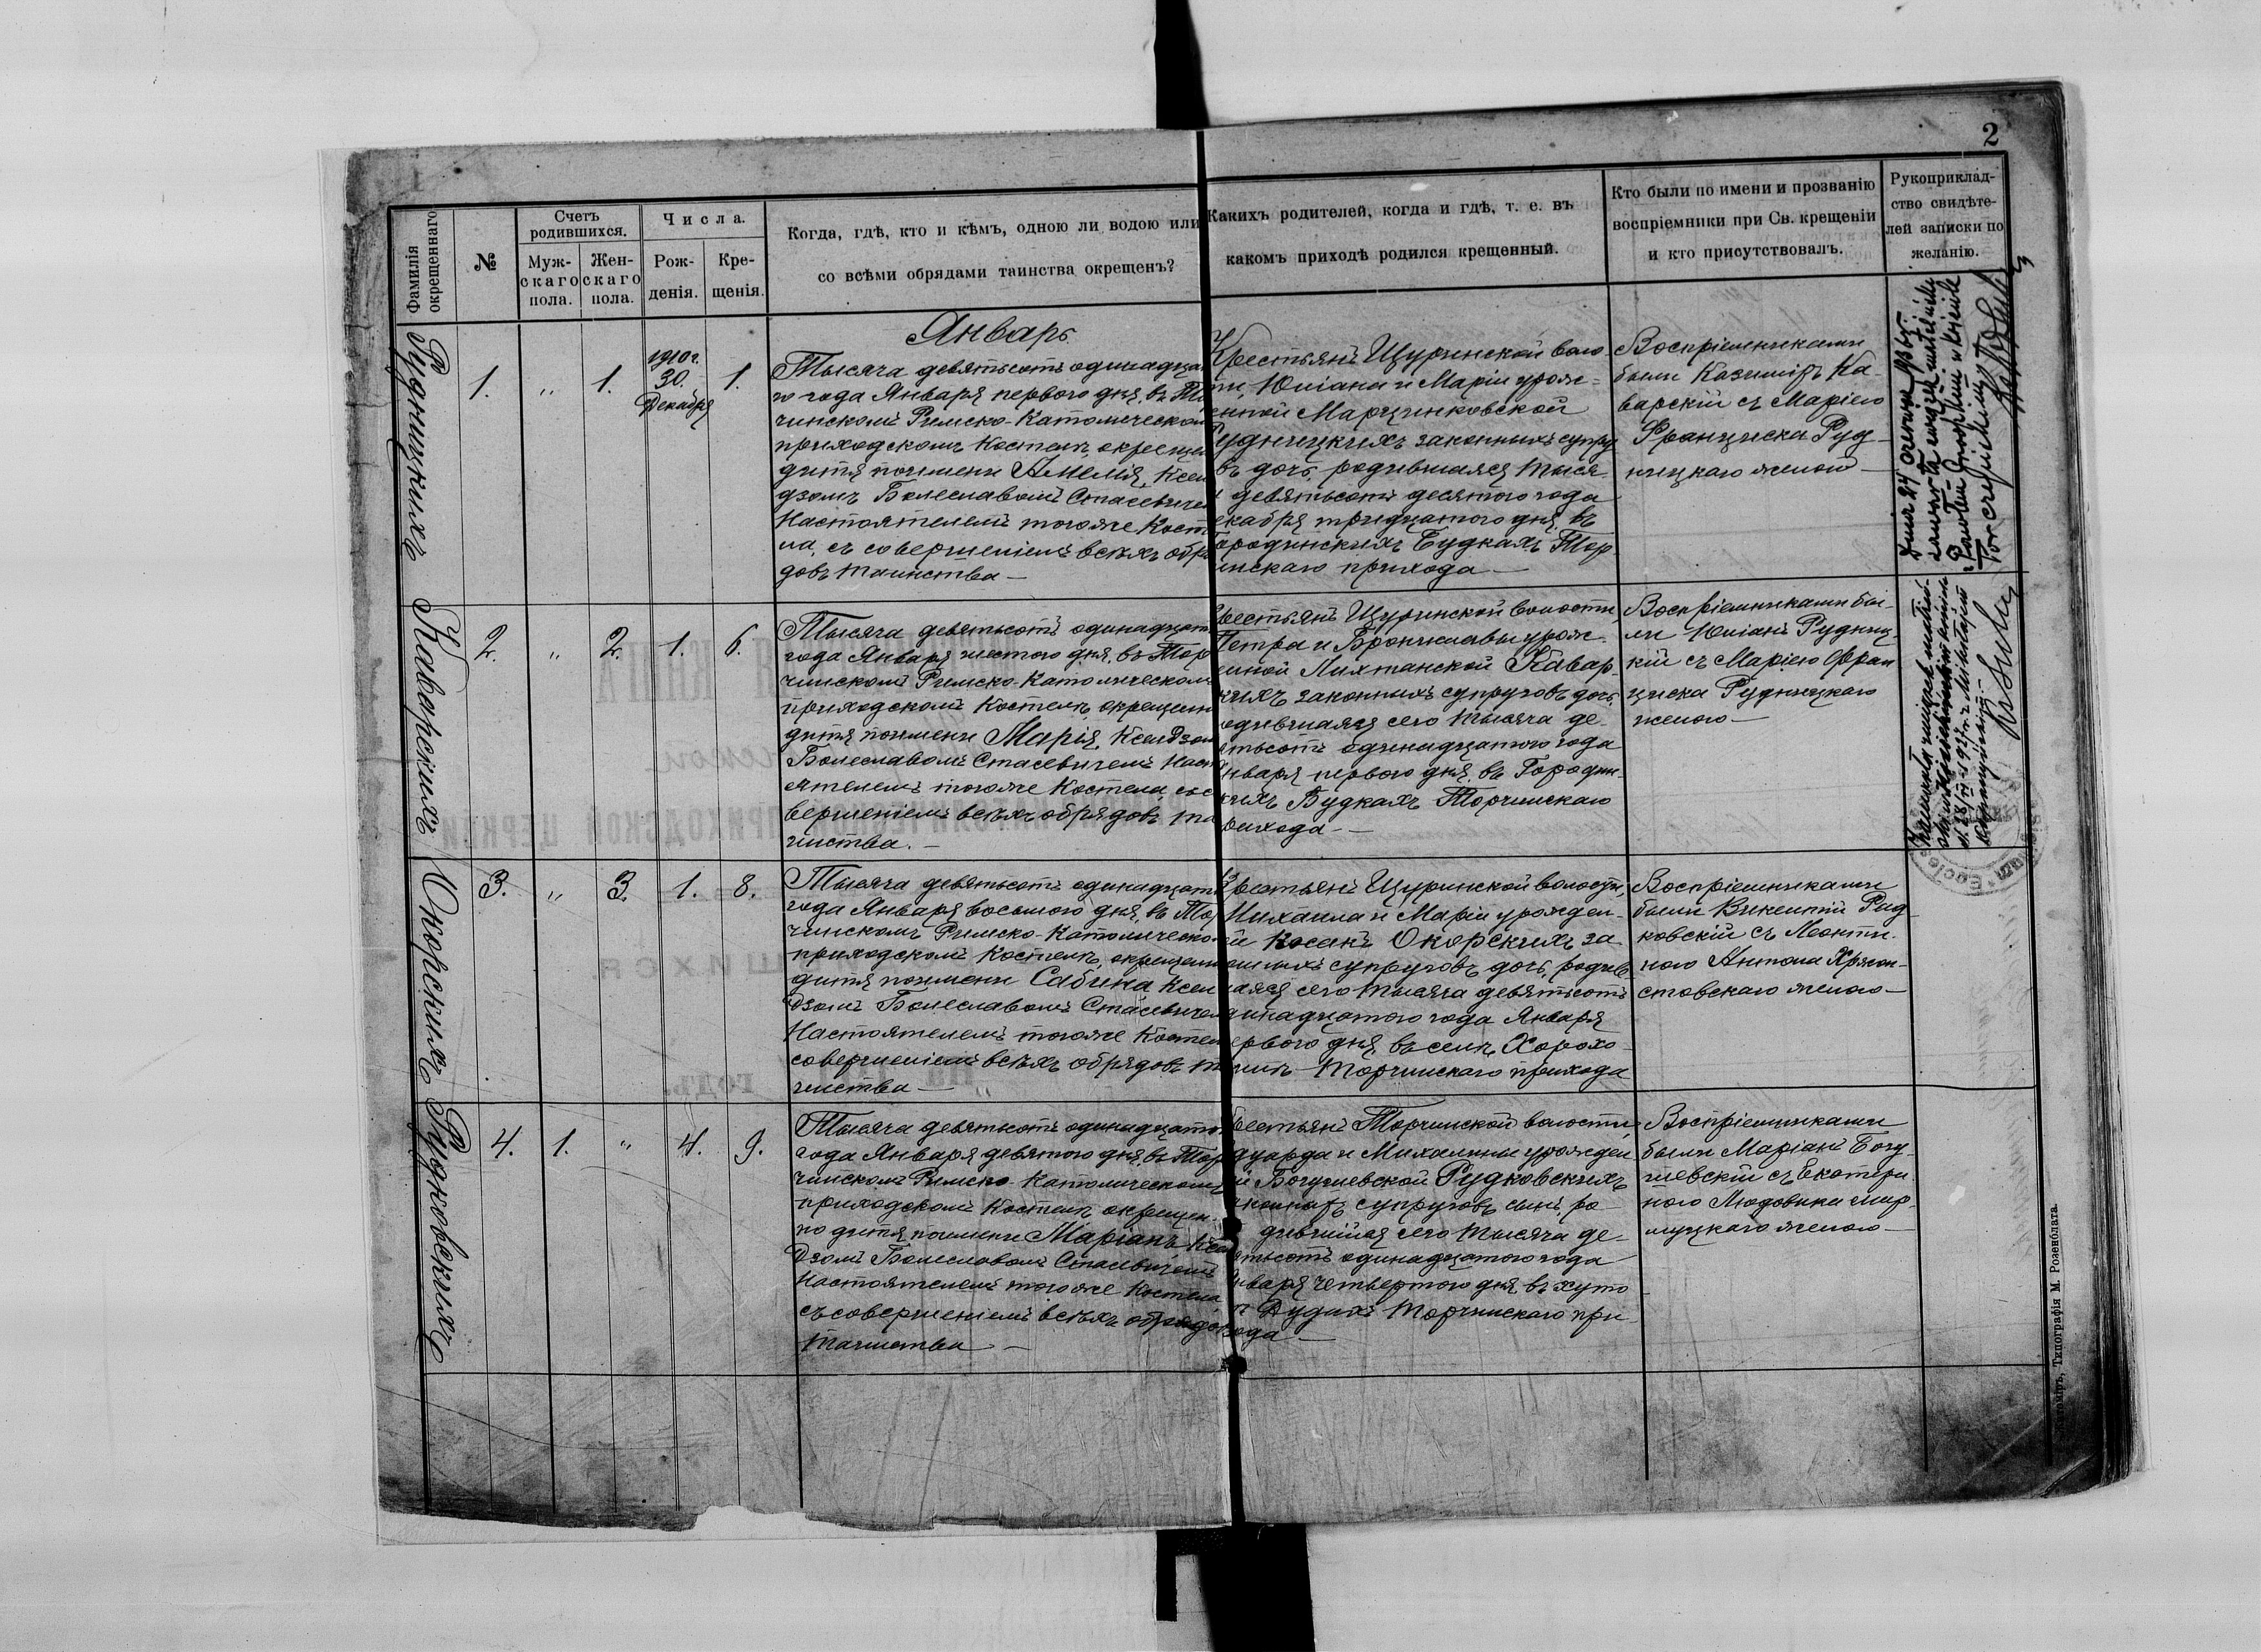 2
Фамилія окрещеннаго
№
Счетъ родившихся.
Муж-скаго пола.
Жен-скаго пола.
Числа.
Рож-денія.
Кре-щенія.
Когда, гдѣ, кто и кѣмъ, одною ли водою или
со всѣми обрядами таинства окрещенъ?
Какихъ родителей, когда и гдѣ, т. е. въ
какомъ приходѣ родился крещенный.
Кто были по имени и прозванію
воспріемники при Св. крещеніи
и кто присутствовалъ.
Рукоприклад-
ство свидѣте-
лей записки по
желанію.
Январь
Рудницкихъ
1. „ 1. 1910 г. 30. Декабря 1.
Тысяча девятьсотъ одинадца
го года Января перваго дня, въ То
чинскомъ Римско-Католическом
приходскомъ Костелѣ, окрещен
дитя по имени Амелія, Ксен
дзомъ Болеславомъ Стасевичем
Настоятелемъ тогоже Косте
ла, съ совершеніемъ всѣхъ обря
довъ таинства —
Крестьянъ Щуринской воло
ти, Юліана и Маріи урож=
енной Марцинковской
Рудницкихъ законныхъ супру
въ дочь, родившаяся тыся
девятьсотъ десятого года
екабря тридцатого дня, въ
Городинскихъ Будкахъ Тор
инскаго прихода —
Воспріемниками
были Казиміръ Ка-
варскій съ Маріею
Франциска Руд-
ницкаго женою —
Каварскихъ
2. „ 2. 1. 6.
Тысяча девятьсотъ одинадцат
года Января шестого дня, въ Тор
чинскомъ Римско-Католическомъ
приходскомъ Костелѣ, окрещен
дитя по имени Марія, Ксендзом
Болеславомъ Стасевичемъ Наст
ятелемъ тогоже Костела, съ со
вершеніемъ всѣхъ обрядовъ та
инства. —
рестьянъ Щуринской волости,
Петра и Брониславы урож-
енной Лихтанской Кавар-
кихъ законныхъ супруговъ дочь,
одившаяся сего тысяча де-
ятьсотъ одинадцатого года
Января перваго дня, въ Городин-
кихъ Будкахъ Торчинскаго
рихода —
Воспріемниками бы-
ли Юліанъ Рудниц-
кій съ Маріею Фран
циска Рудницкаго
женою —
Окорскихъ
3. „ 3. 1. 8.
Тысяча девятьсотъ одинадцат
года Января восьмого дня, въ Тор
чинскомъ Римско-Католическо
приходскомъ Костелѣ, окрещен
дитя по имени Сабина Ксен
дзомъ Болеславомъ Стасевичем
Настоятелемъ тогоже Костел
совершеніемъ всѣхъ обрядовъ та
инства —
рестьянъ Щуринской волости,
Михаила и Маріи урожден-
й Косакъ Окорскихъ за
онныхъ супруговъ дочь, родив
аяся сего тысяча девятьсотъ
динадцатого года Января
ервого дня, въ селѣ Хорохо-
инѣ Торчинскаго прихода
Воспріемниками
были Викентій Руд
ковскій съ Леонти-
ною Антона Хржон-
стовскаго женою —
Рудковскихъ
4. 1. „ 4. 9.
Тысяча девятьсотъ одинадцато
года Января девятого дня, въ Тор
чинскомъ Римско-Католическомъ
приходскомъ Костелѣ окрещен-
но дитя по имени Маріанъ Ксен
дзомъ Болеславомъ Стасевичемъ
Настоятелемъ тогоже Костела,
съ совершеніемъ всѣхъ обрядов
таинства —
рестьянъ Торчинской волости,
дуарда и Михалины урожден
й Богушевской Рудковскихъ
аконныхъ супруговъ сынъ, ро-
дившійся сего тысяча де-
ятьсотъ одинадцатого года
нваря четвертого дня въ хуто
ѣ Дудахъ Торчинскаго при-
хода —
Воспріемниками
были Маріанъ Богу-
шевскій съ Екатери
ною Людовика
женою —
Типографія М. Розенблата.